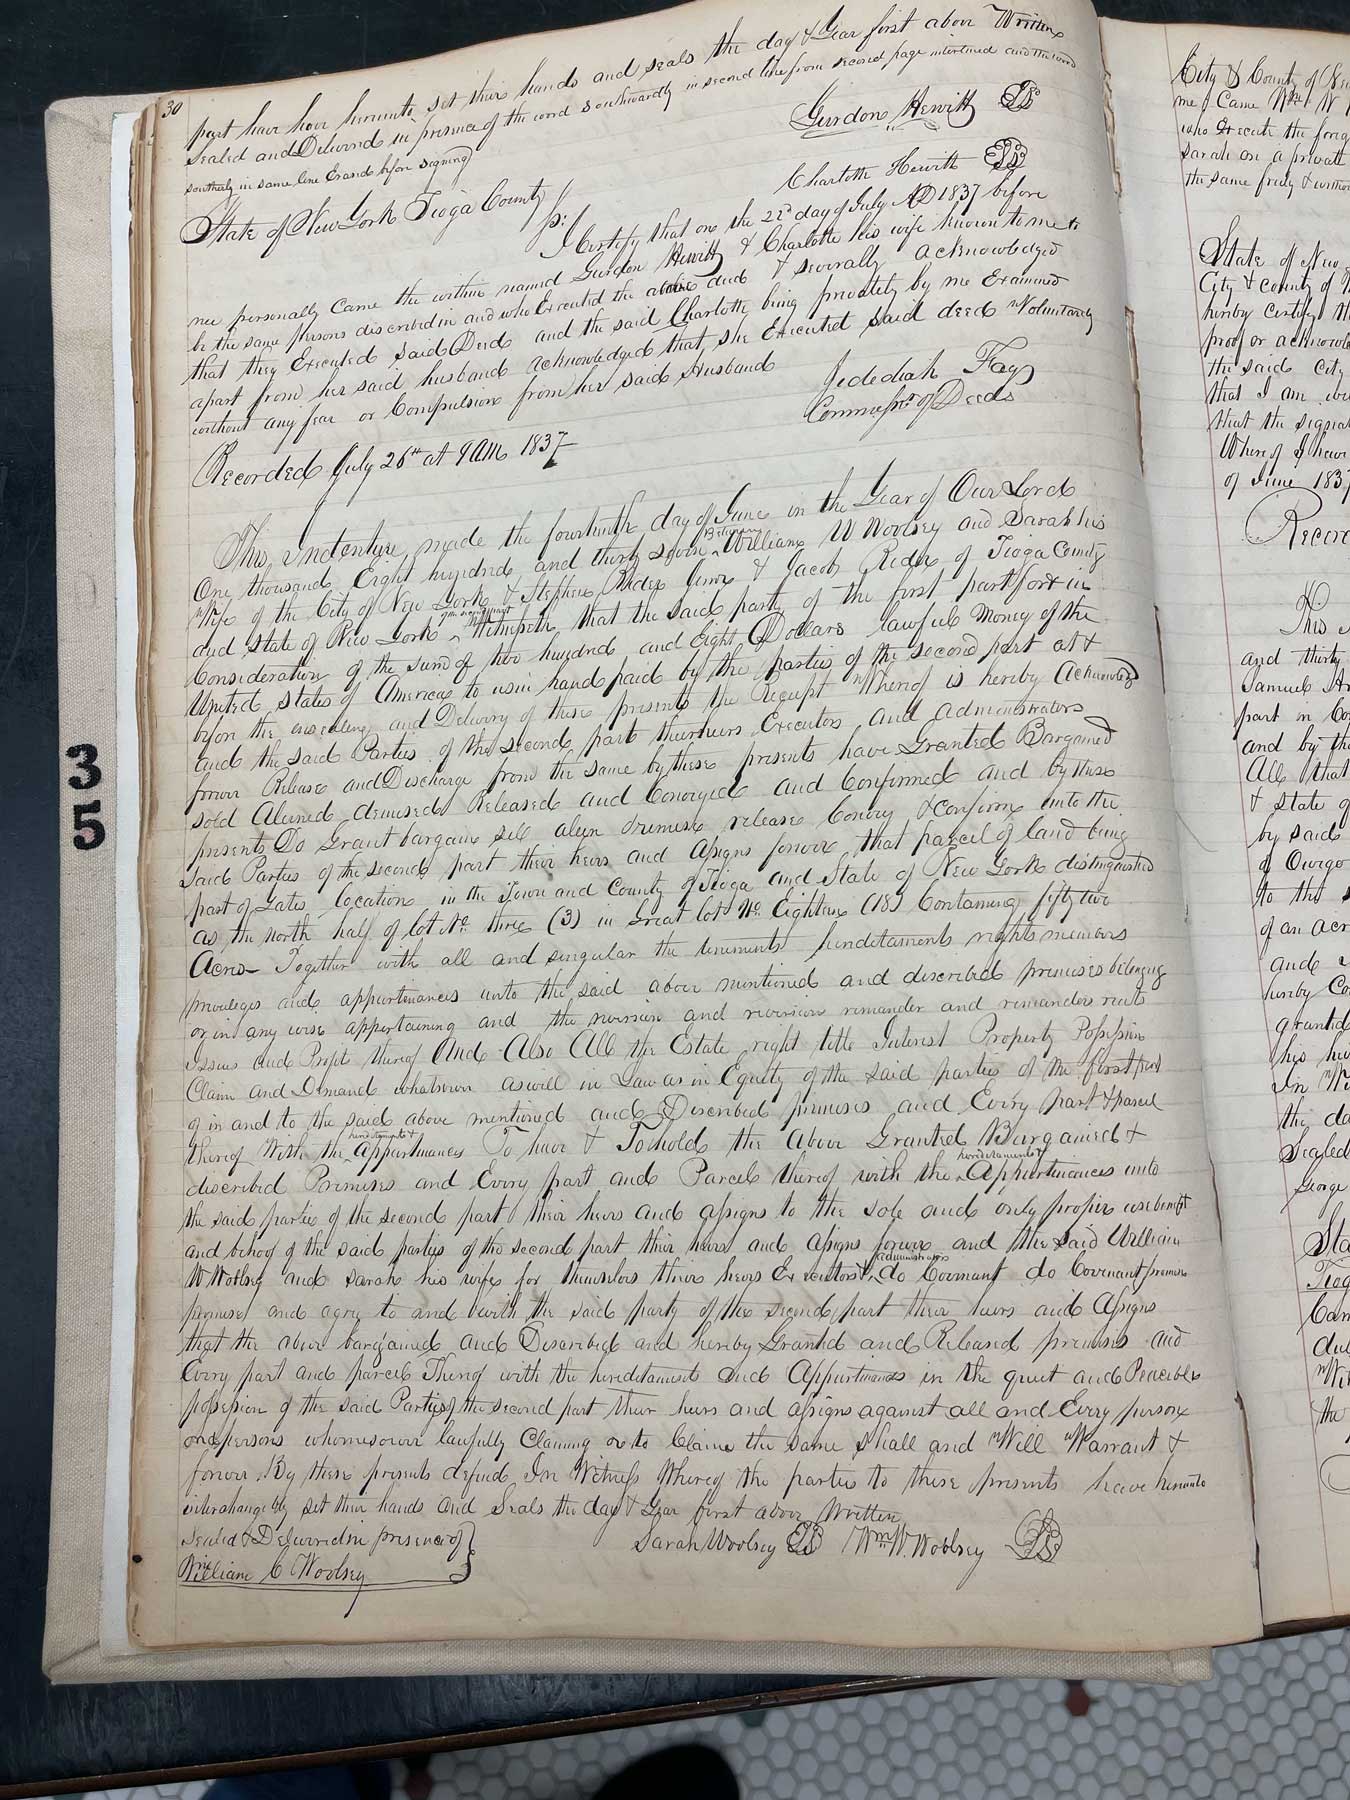 30
part have here hereunto set their hands and seals the day & Year first above Written
Sealed and Delivered in presence of the word southwardly in second line from second page interlined and the word
southerly in same line Erased before signing
Gurdon Hewitt LS
Charlotte Hewitt LS
State of New York Tioga County Ss:
I Certify that on the 22d day of July AD 1837 before
me personally Came the within named Gurdon Hewitt & Charlotte his wife known to me to
be the same persons described in and who Executed the above deed & severally acknowledged
that they Executed said Deed and the said Charlotte being privately by me Examined
apart from her said husband acknowledged that she Executed said deed Voluntarily
without any fear or Compulsion from her said Husband
Jedediah Fay
Commissr of Deeds
Recorded July 26th at 9 AM 1837
This Indenture made the fourteenth day of June in the Year of Our Lord
One thousand Eight hundred and thirty seven Between William W Woolsey and Sarah his
Wife of the City of New York & Stephen Rider Junr & Jacob Rider of Tioga County
and State of New York Witnesseth that the said party of the first part for & in
Consideration of the sum of two hundred and Eight Dollars lawful money of the
United States of America to us in hand paid by the parties of the second part at &
before the ensealing and Delivery of these presents the Receipt Whereof is hereby Acknowledgd
and the said Parties of the second part their heirs Executors and administrators
forever Release and Discharge from the same by these presents have Granted Bargained
sold Aliened demised Released and Conveyed and Confirmed and by these
presents Do Grant bargain sell alien demise release Convey & confirm unto the
said Parties of the second part their heirs and assigns forever that parcel of land being
part of Gates location in the Town and County of Tioga and State of New York distinguished
as the north half of lot No three (3) in Great lot No Eighteen (18) Containing fifty two
Acres Together with all and singular the tenements hereditaments rights members
privileges and appurtenances unto the said above mentioned and described premises belonging
or in any wise appertaining and the reversion and reversions remainder and remainders rents
issues and Profits thereof And Also All the Estate right title Interest Property Possession
Claim and Demand whatsoever as well in Law as in Equity of the said parties of the first part
of in and to the said above mentioned and Described premises and Every part & parcel
thereof With the hereditaments & appurtenances To have & To hold the above Granted Bargained &
described Premises and Every part and Parcel thereof with the hereditaments & Appurtenances unto
the said parties of the second part their heirs and assigns to the sole and only proper use benefit
and behoof of the said parties of the second part their heirs and assigns forever and the said William
W Woolsey and Sarah his wife for themselves their heirs Executors & administrators do Covenant do Covenant promise
promise and agree to and with the said party of the second part their heirs and Assigns
that the above bargained and Described and hereby Granted and Released premises and
Every part and parcel Thereof with the hereditaments and Appurtenances in the quiet and Peaceable
possession of the said Parties of the second part their heirs and assigns against all and Every person
or persons whomsoever lawfully Claiming or to Claim the same shall and Will Warrant &
forever By these presents defend In Witness Whereof the parties to these presents have hereunto
interchangeably set their hands and Seals the day & Year first above Written
Sealed & Delivered in presence of
William C Woolsey
Sarah Woolsey LS Wm W. Woolsey LS
35
City & County of New
me Came Wm W
who Execute the foreg
Sarah on a private
the same freely & withou
State of New
City & County of
hereby Certify th
proof or acknowle
the said City
that I am
that the signat
Whereof I have
of June 1837
Recor
This
and thirty
Samuel
part in Co
and by th
All that
& State of
by said
of Owego
to the
of an acr
and
hereby Co
granted
his hei
In Wi
the da
Sealed
George
Sta
Tiog
Cam